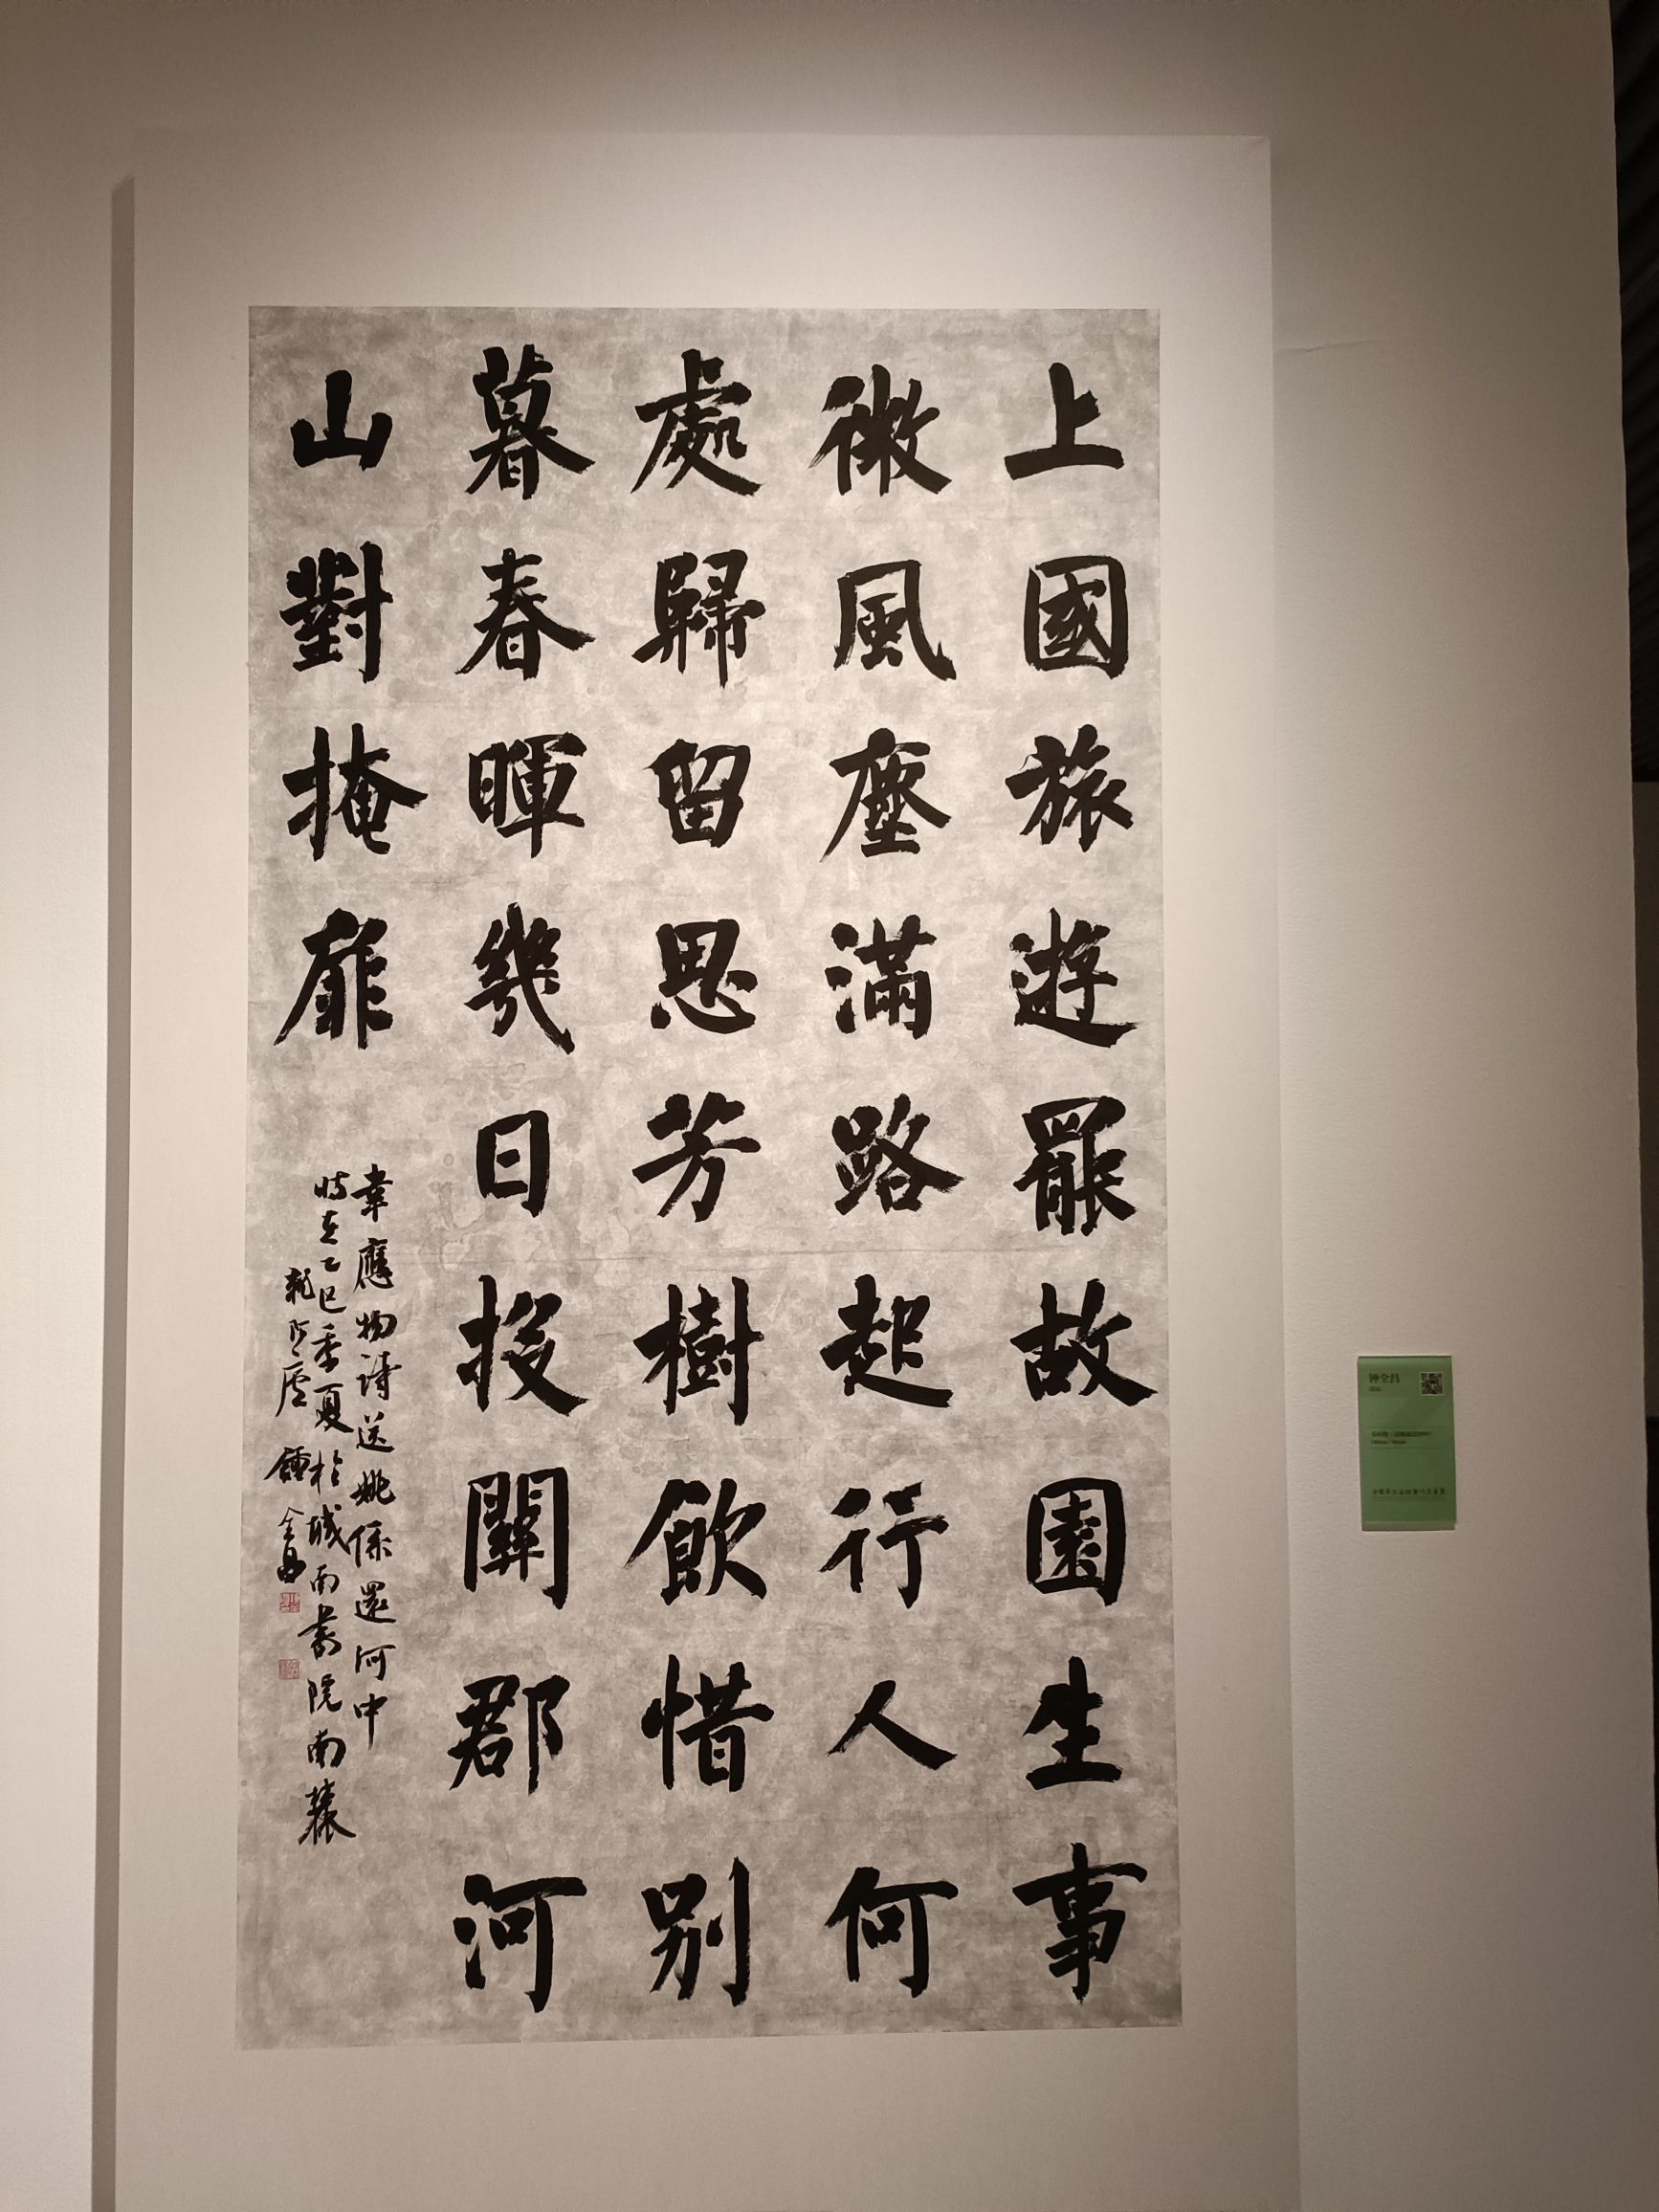 上國旅遊罷故園生事
微風塵滿路起行人何
處歸留思芳樹飲惜別
暮春暉幾日投關郡河
山對掩扉
韋應物詩送姚係還河中
時在乙巳季夏於城南書院南麓
乾ROW廬鍾全昌
钟全昌